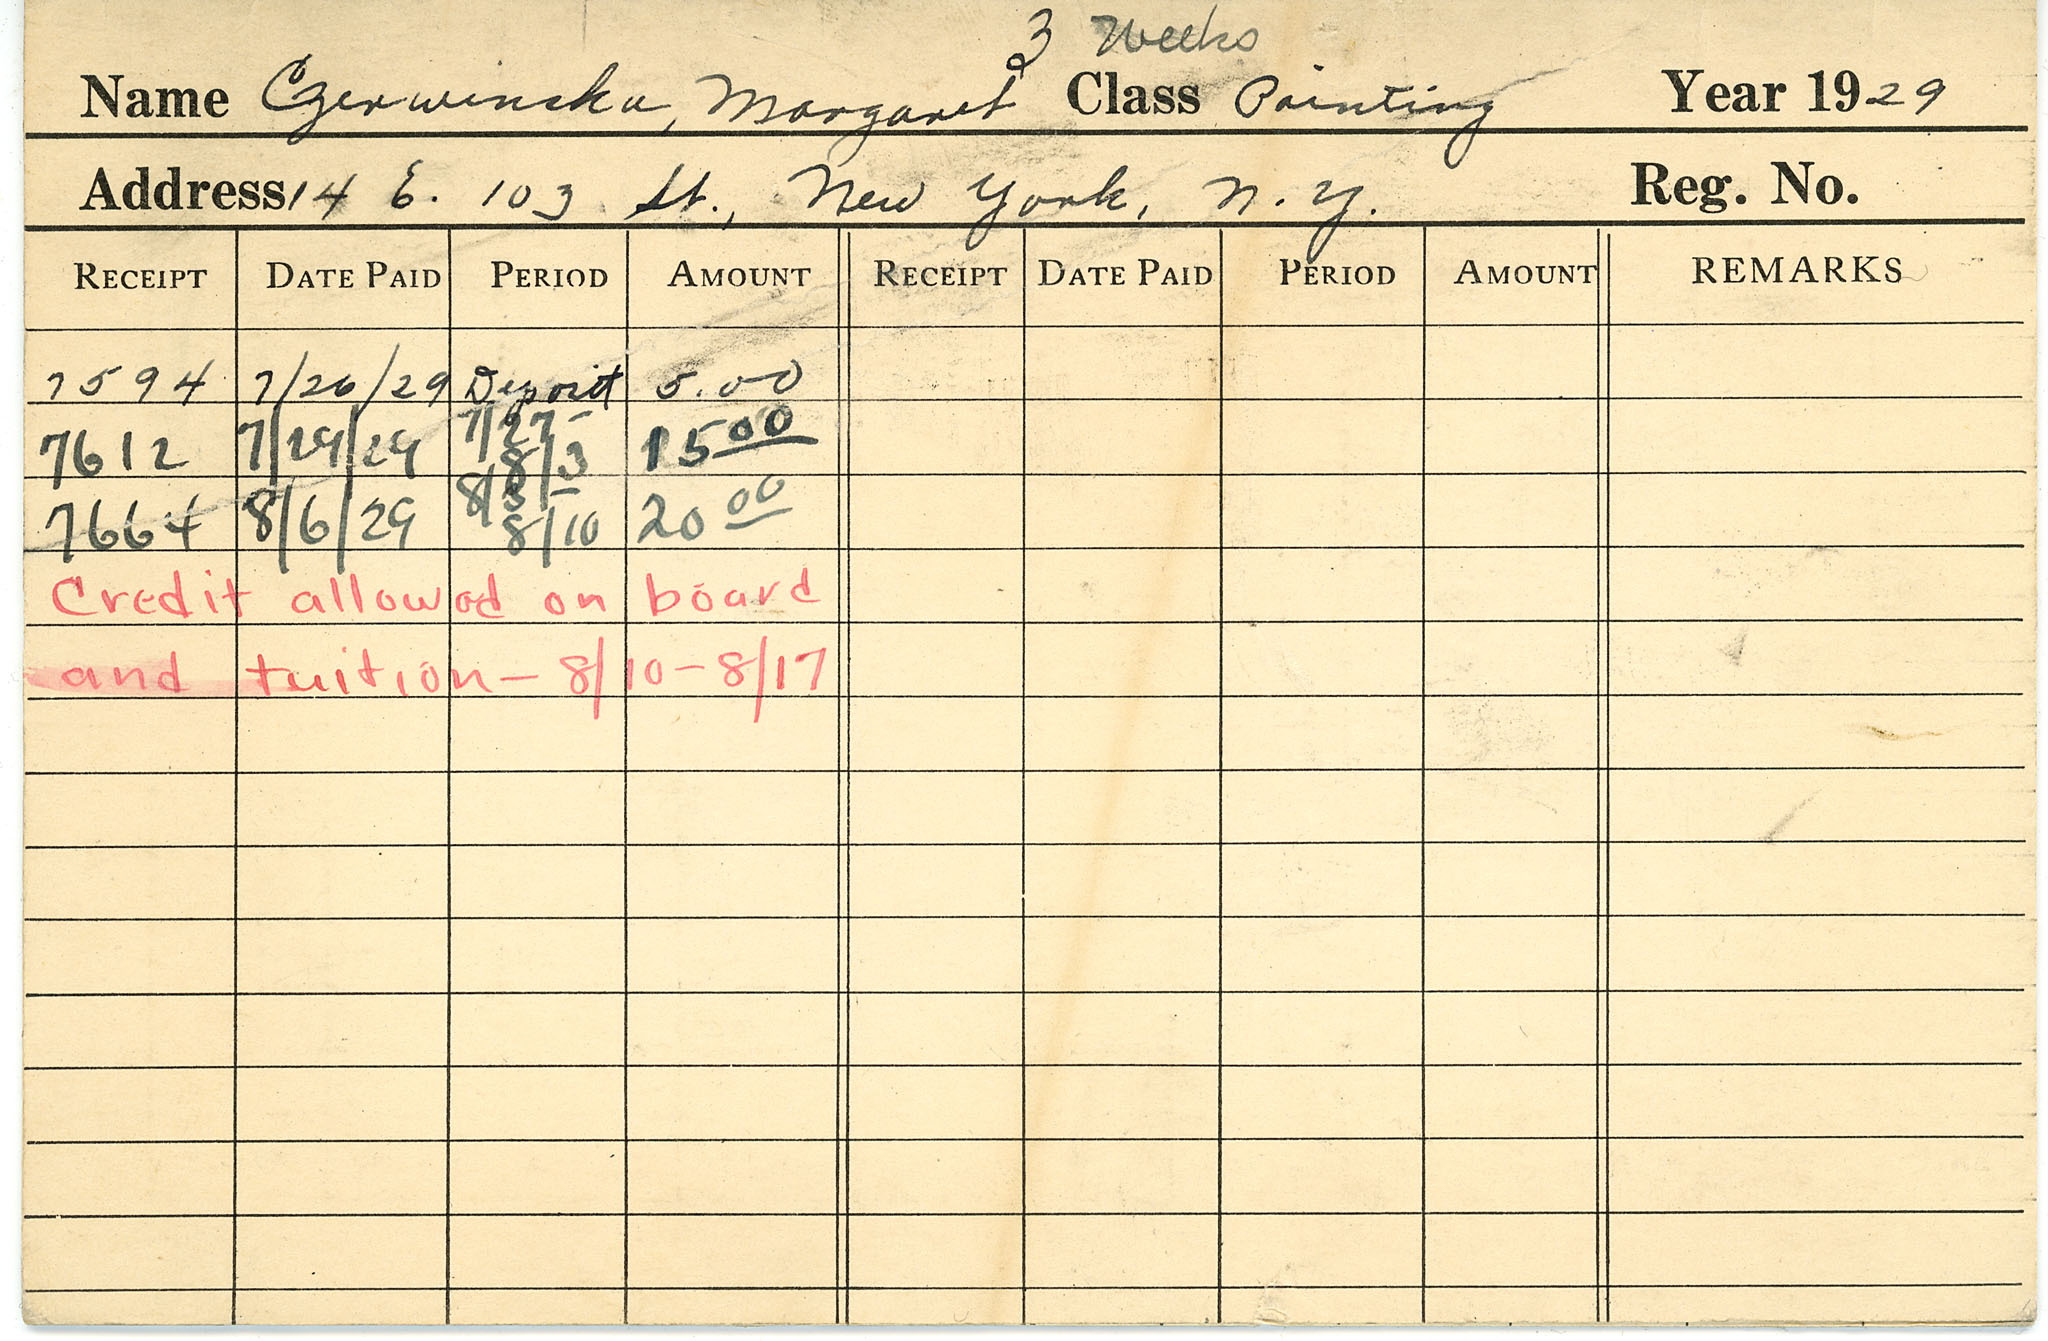 3 Weeks
Name Czerwinska, Margaret Class Painting Year 1929
Address 14 E. 103 St., New York, N.Y. Reg. No.
RECEIPT DATE PAID PERIOD AMOUNT RECEIPT DATE PAID PERIOD AMOUNT REMARKS
7594 7/26/29 Deposit 5.00
7612 7/29/29 7/27- 8/3 15 00
7664 8/6/29 8/3- 8/10 20 00
Credit allowed on board
and tuition - 8/10 - 8/17